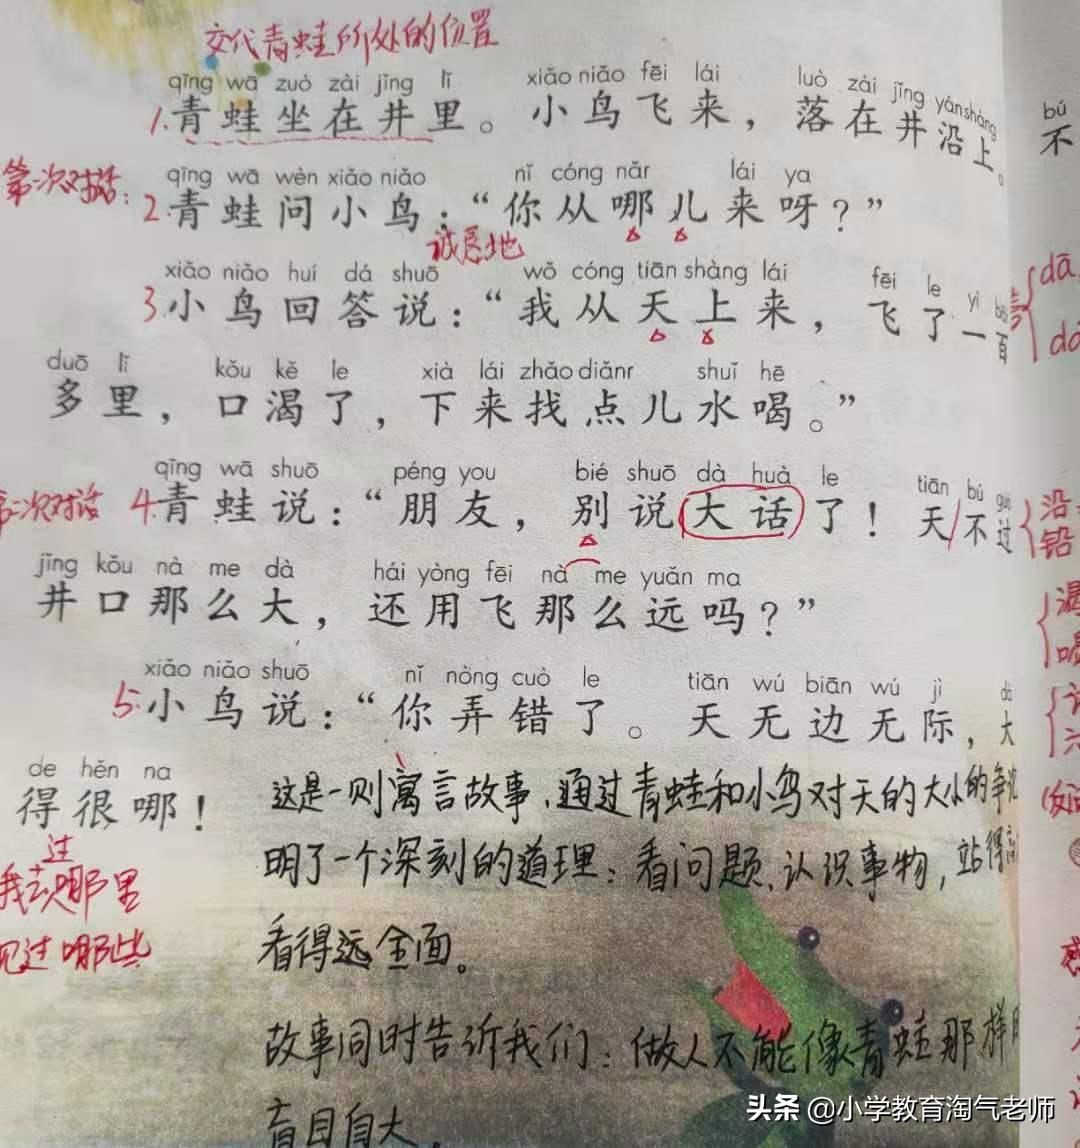 交代青蛙所处的位置
qīng wā zuò zài jǐng lǐ xiǎo niǎo fēi lái luò zài jǐng yán shàng
1.青蛙坐在井里。小鸟飞来，落在井沿上。
bú
不
第一次对话：
qīng wā wèn xiǎo niǎo nǐ cóng nǎr lái ya
2.青蛙问小鸟：“你从哪儿来呀？”
诚恳地
xiǎo niǎo huí dá shuō wǒ cóng tiān shàng lái fēi le yì bǎi
3.小鸟回答说：“我从天上来，飞了一百
dā
duō lǐ kǒu kě le xià lái zhǎo diǎnr shuǐ hē
多里，口渴了，下来找点儿水喝。”
qīng wā shuō péng you bié shuō dà huà le tiān bú guò
二次对话
4.青蛙说：“朋友，别说大话了！天/不过
沿
铅
jǐng kǒu nà me dà hái yòng fēi nà me yuǎn ma
井口那么大，还用飞那么远吗？”
渴
喝
xiǎo niǎo shuō nǐ nòng cuò le tiān wú biān wú jì dà
5.小鸟说：“你弄错了。天无边无际，大
de hěn na
得很哪！
过
我去哪里
见过哪些
这是一则寓言故事，通过青蛙和小鸟对天的大小的争论
明了一个深刻的道理：看问题、认识事物，站得高
看得远全面。
故事同时告诉我们：做人不能像青蛙那样
盲目自大。
头条 @小学教育淘气老师